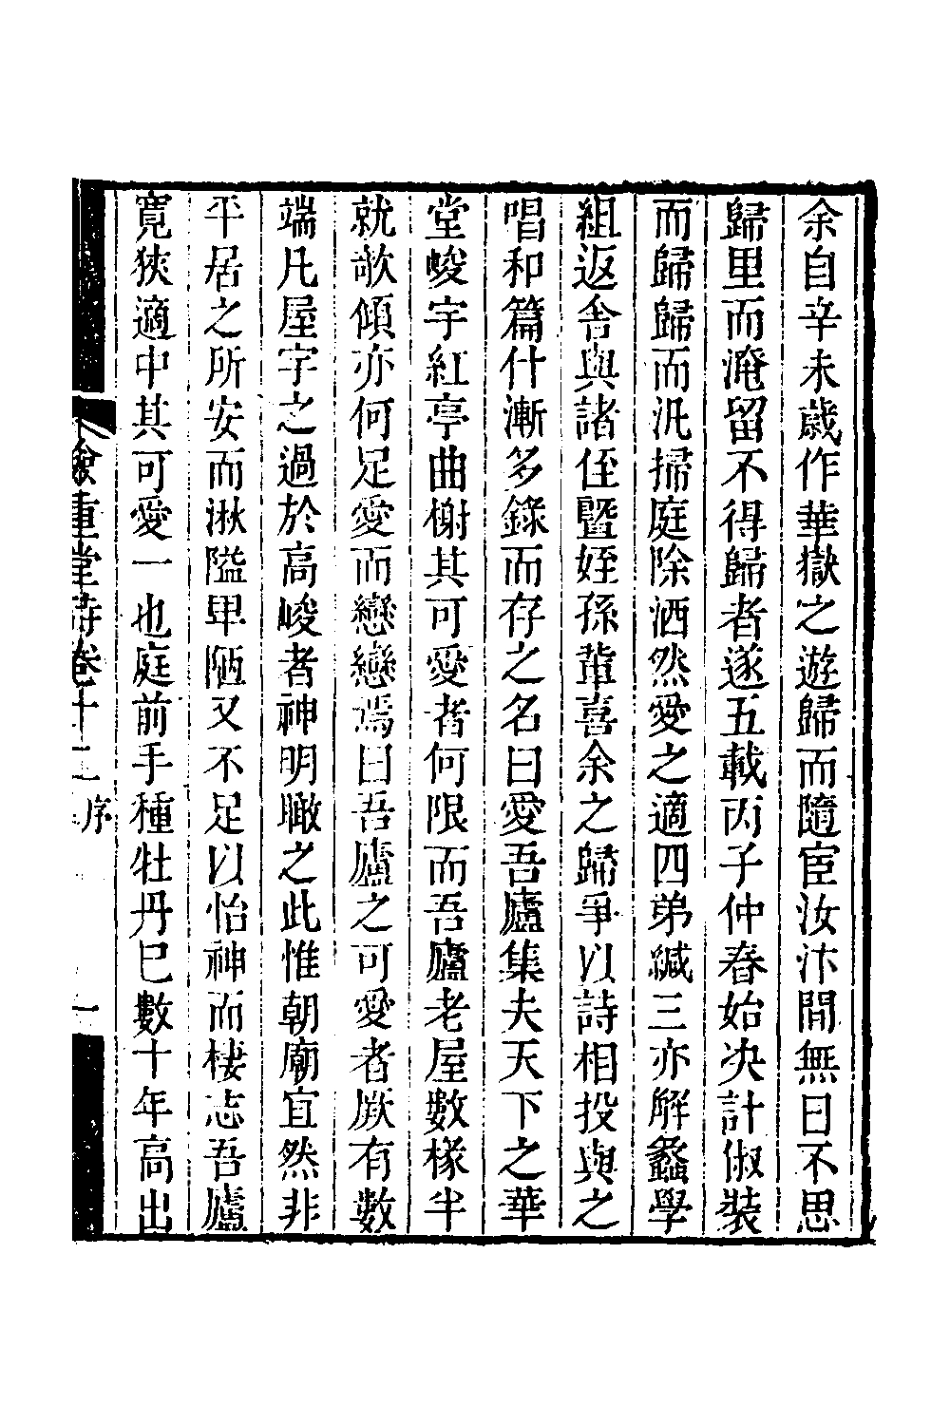 余自辛未歲作華嶽之遊歸而隨宦汝汴間無日不思
歸里而淹留不得歸者遂五載丙子仲春始决計俶裝
而歸歸而汛掃庭除洒然愛之適四弟緘三亦解蠡學
組返舍與諸侄暨姪孫輩喜余之歸爭以詩相投與之
唱和篇什漸多錄而存之名曰愛吾廬集夫天下之華
堂峻宇紅亭曲榭其可愛者何限而吾廬老屋數椽半
就欹傾亦何足愛而戀戀焉曰吾廬之可愛者厥有數
端凡屋宇之過於高峻者神明瞰之此惟朝廟宜然非
平居之所安而湫隘卑陋又不足以怡神而棲志吾廬
寬狹適中其可愛一也庭前手種牡丹巳數十年高出
重堂詩卷十二 序 一